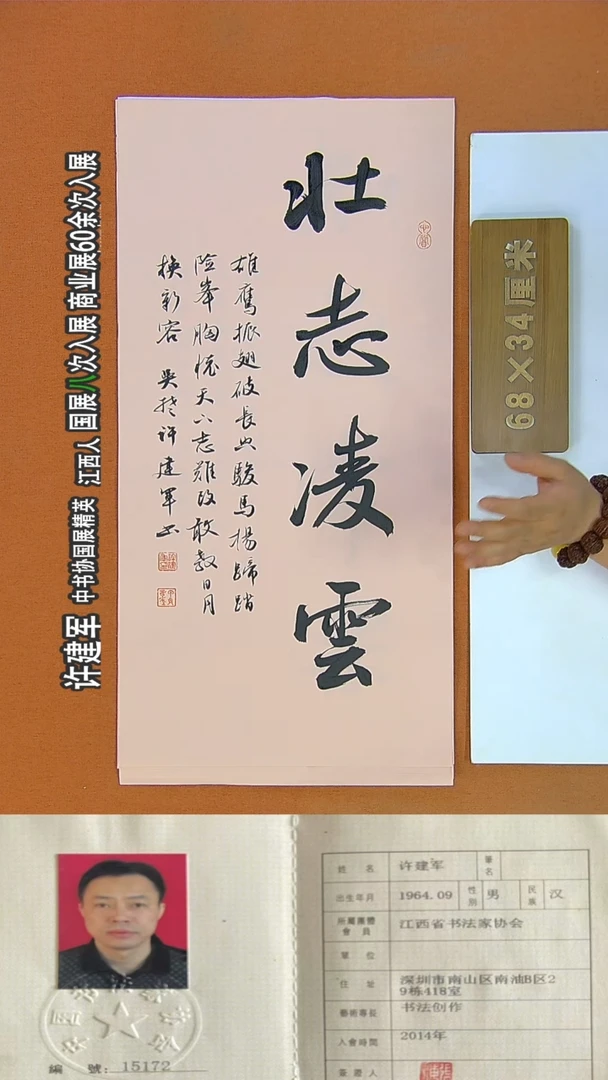 壮志凌雲
雄鹰振翅破长空骏马扬蹄踏
险峰胸怀天下志雄改敢教日月
换新容 吴楚许建军书
68×34厘米
许建军 中书协国展精英 江西人 国展八次入展 商业展60余次入展
姓名 许建军 筆名
出生年月 1964.09 性別 男 民族 汉
所屬團體會員 江西省书法家协会
單位
住址 深圳市南山区南油B区2
9栋418室
藝術專長 书法创作
入會時間 2014年
簽證人
編號：15172